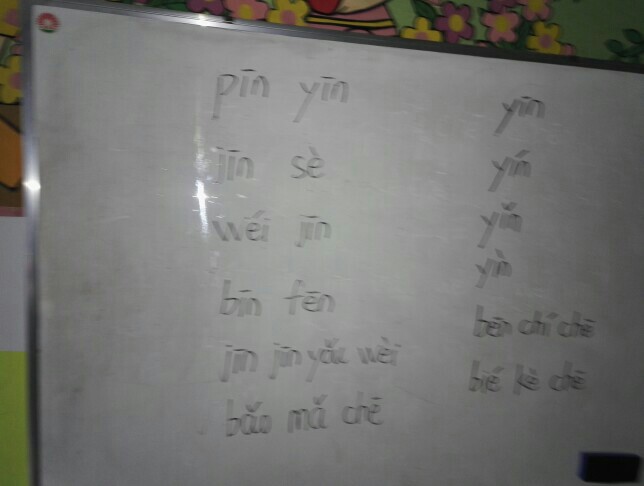 pīn yīn
jīn sè
wéi jīn
bīn fēn
jīn jīn yǒu wèi
bǎo mǎ chē
yīn
yín
yǐn
yìn
bēn chí chē
bié kè chē